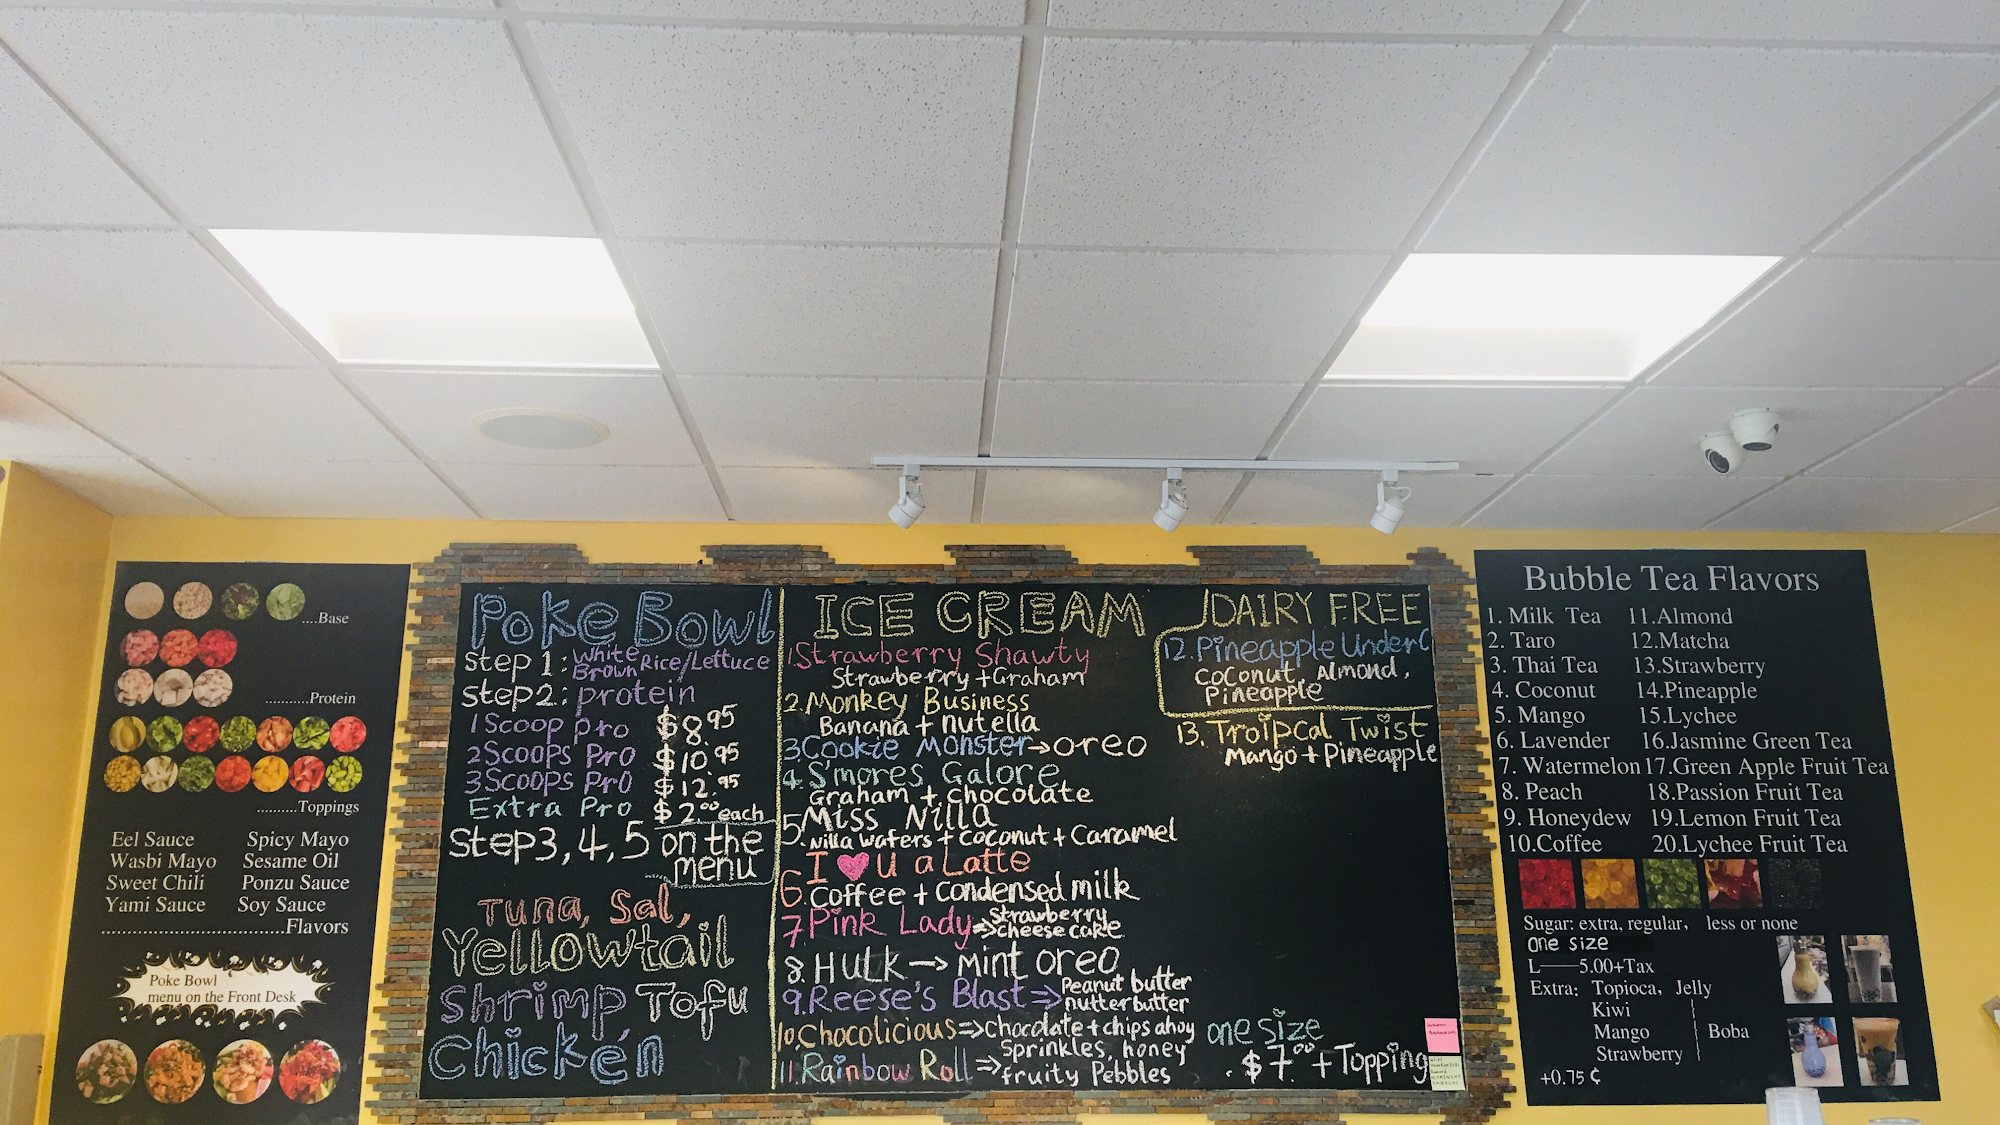 ....Base
..........Protein
..........Toppings
Eel Sauce Spicy Mayo
Wasbi Mayo Sesame Oil
Sweet Chili Ponzu Sauce
Yami Sauce Soy Sauce
....................................Flavors
Poke Bowl
menu on the Front Desk
Poke Bowl
Step 1: White Brown Rice/Lettuce
Step2: protein
1 Scoop pro $8.95
2 Scoops Pro $10.95
3 Scoops Pro $12.95
Extra Pro $2.00 each
Step 3, 4, 5 on the
menu
Tuna, Sal,
Yellowtail
Shrimp, Tofu
Chicken
ICE CREAM
1. Strawberry Shawty
Strawberry + Graham
2. Monkey Business
Banana + nutella
3. Cookie Monster → oreo
4. S'mores Galore
Graham + chocolate
5. Miss Nilla
Nilla wafers + coconut + Caramel
6. I ♥ U a Latte
Coffee + condensed milk
7. Pink Lady => Strawberry
cheese cake
8. HULK → Mint oreo
9. Reese's Blast => Peanut butter
nutterbutter
10. Chocolicious => chocolate + chips ahoy
11. Rainbow Roll => Sprinkles, honey
fruity Pebbles
DAIRY FREE
12. Pineapple UnderC
Coconut, Almond,
Pineapple
13. Troipcal Twist
Mango + Pineapple
one size
$7.00 + Topping
Bubble Tea Flavors
1. Milk Tea 11.Almond
2. Taro 12.Matcha
3. Thai Tea 13.Strawberry
4. Coconut 14.Pineapple
5. Mango 15.Lychee
6. Lavender 16.Jasmine Green Tea
7. Watermelon 17.Green Apple Fruit Tea
8. Peach 18.Passion Fruit Tea
9. Honeydew 19.Lemon Fruit Tea
10.Coffee 20.Lychee Fruit Tea
Sugar: extra, regular, less or none
one size
L——5.00+Tax
Extra: Topioca, Jelly
Kiwi
Mango Boba
Strawberry
+0.75 ¢